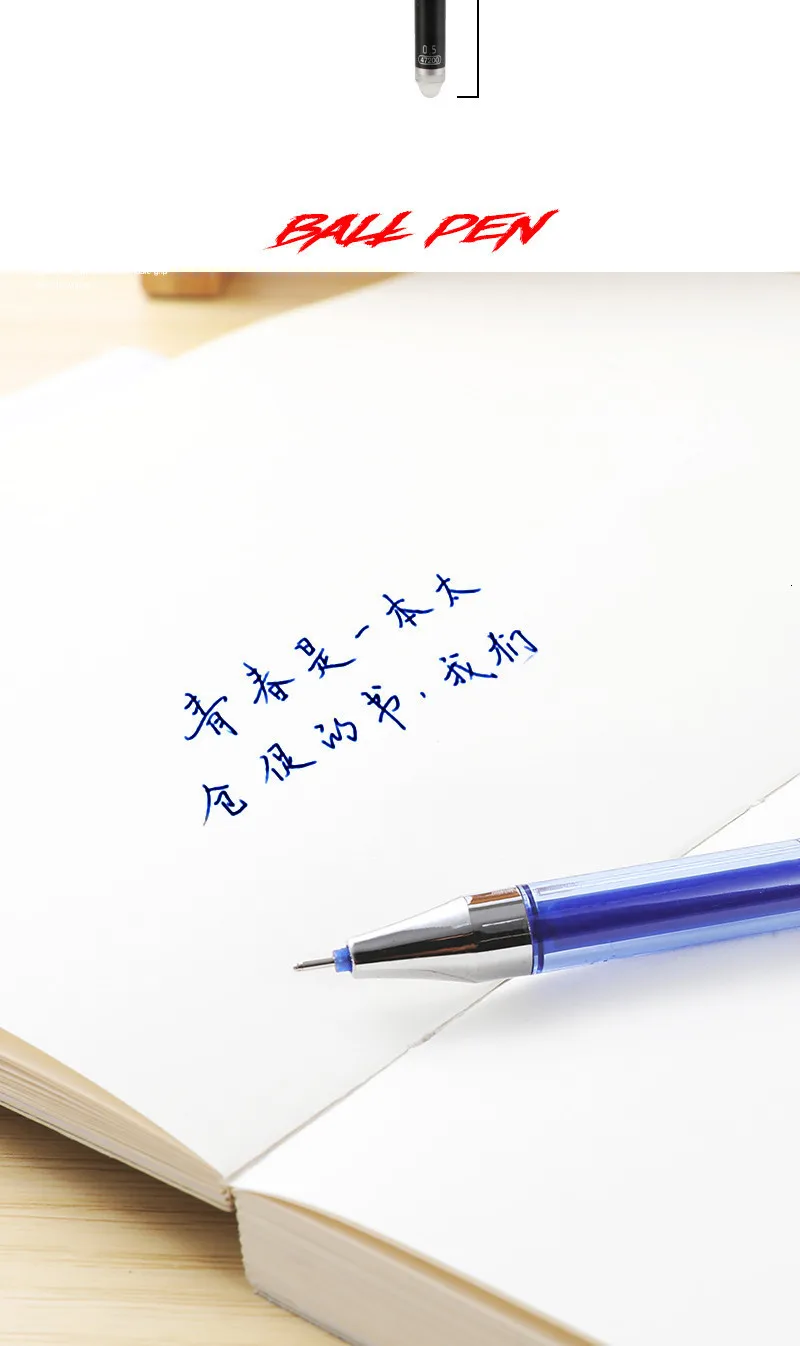 0.5
BALL PEN
青春是一本太
仓促的书，我们